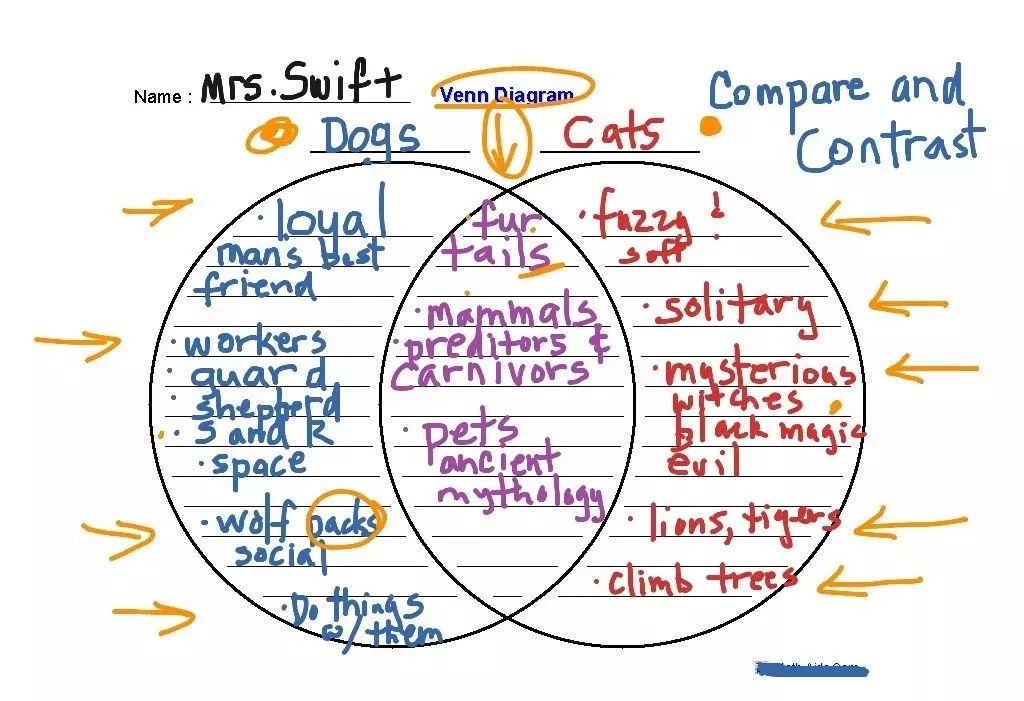 Name : Mrs. Swift
Venn Diagram
Compare and
Contrast
Dogs
Cats
· loyal
mans best
friend
· workers
· guard
· shepherd
· S and R
· space
· wolf packs
social
· Do things
w/ them
· fur
tails
· mammals
· preditors &
carnivors
· pets
ancient
mythology
· fuzzy !
soft
· solitary
· mysterious
witches
black magic
evil
· lions, tigers
· climb trees